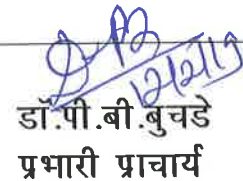 डॉ.पी.बी.बुचडे
प्रभारी प्राचार्य